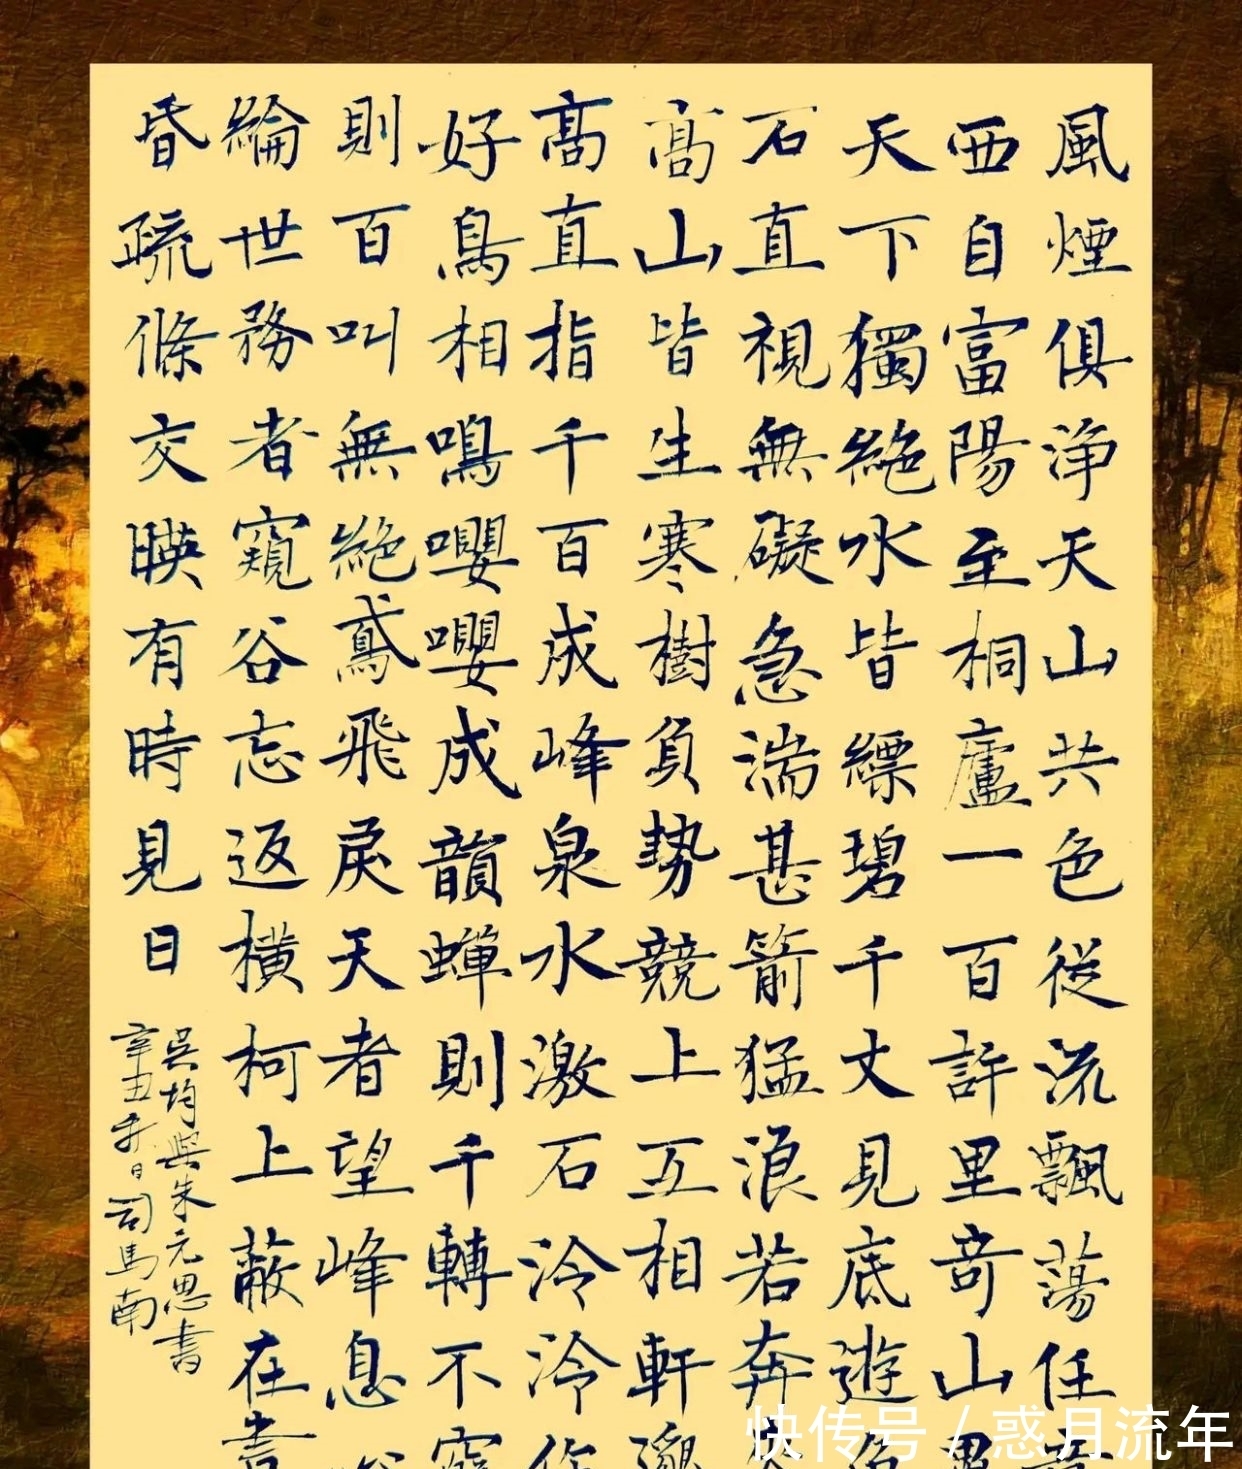 風煙俱浄天山共色從流飄蕩任
西自富陽至桐廬一百許里竒山
天下獨絶水皆縹碧千丈見底遊
石直視無礙急湍甚箭猛浪若奔
高山皆生寒樹負勢競上互相軒邈
髙直指千百成峰泉水激石泠泠作
好鳥相鳴嚶嚶成韻蟬則千轉不窮
則百叫無絶鳶飛戾天者望峰息
綸世務者窺谷忘返橫柯上蔽在晝
昏疏條交暎有時見日
吳均與朱元思書
辛丑日司馬南
快传号 / 惑月流年